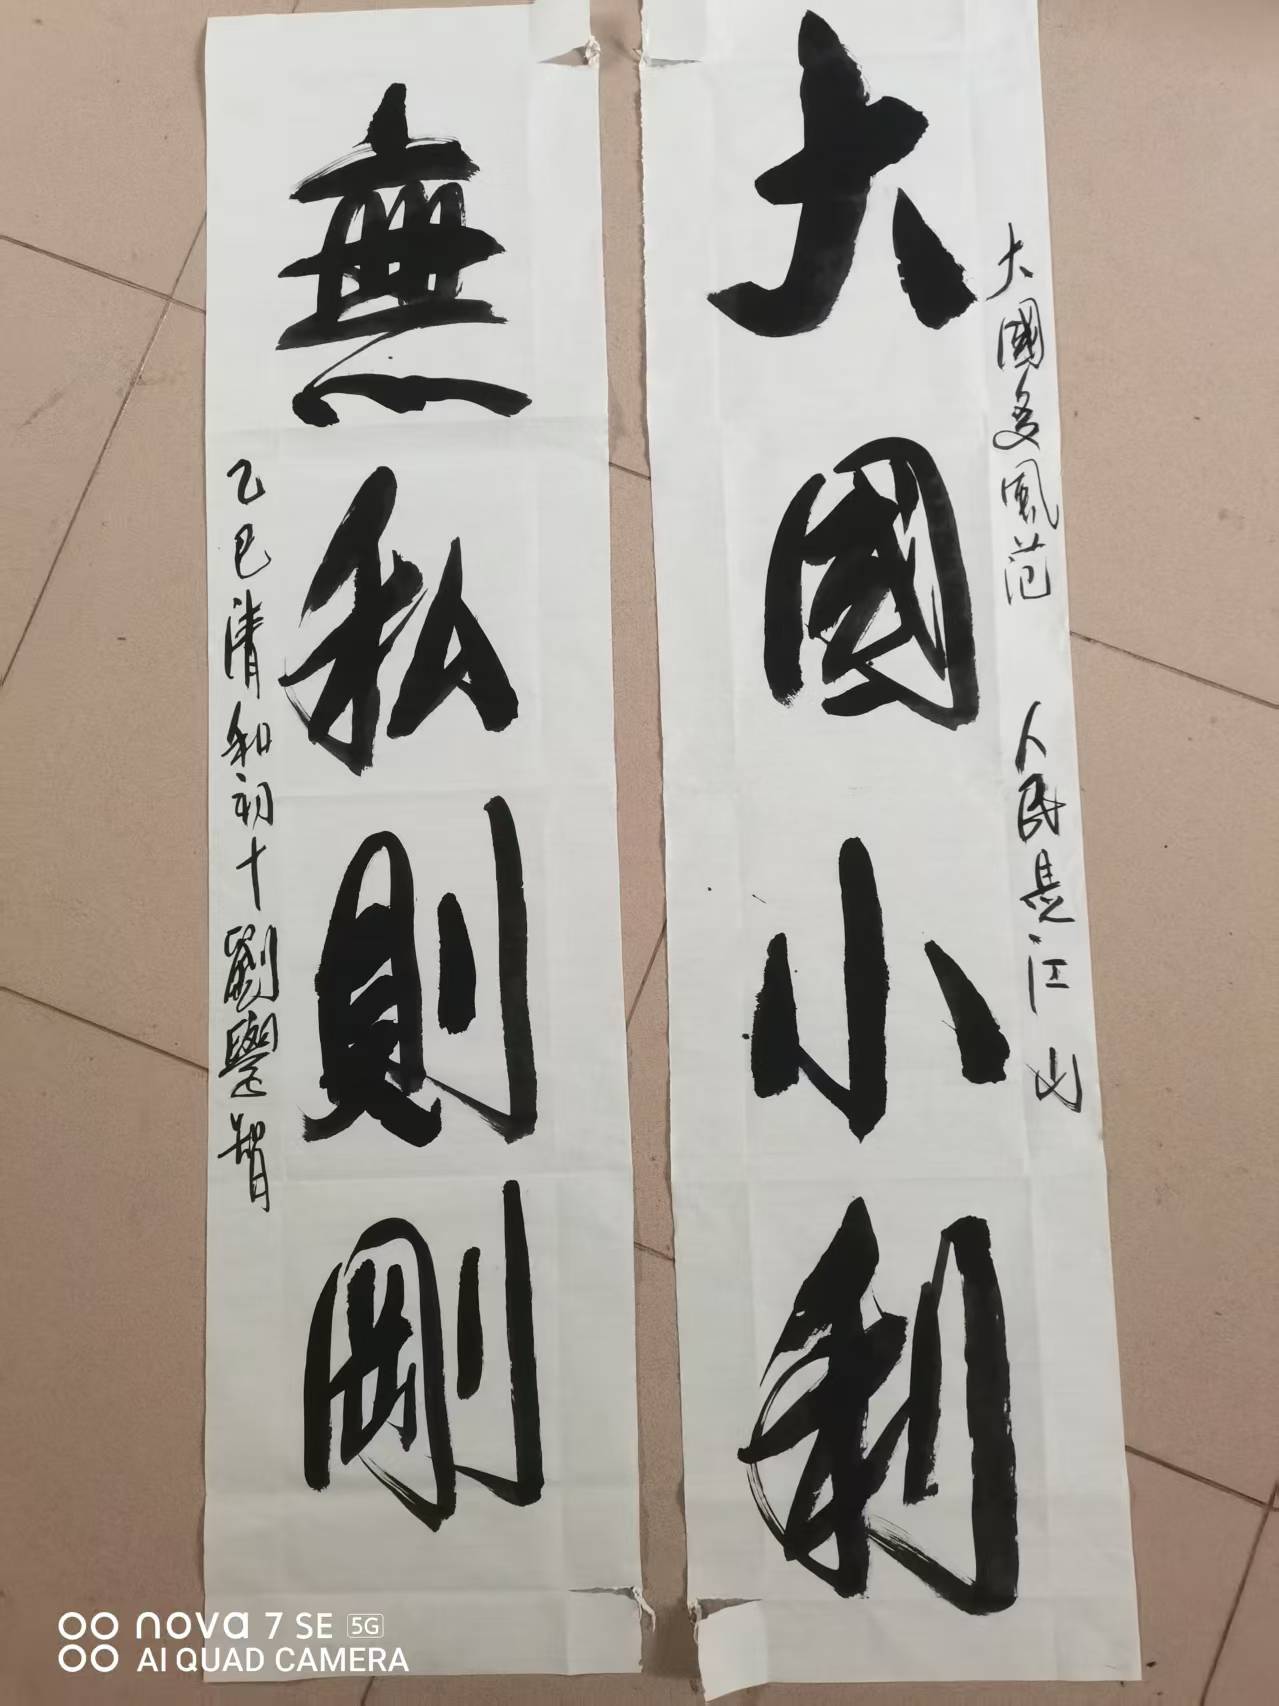 大國多風范 人民是江山
大國小利
無私則剛
乙巳清和初十劉學智
nova 7 SE 5G
AI QUAD CAMERA